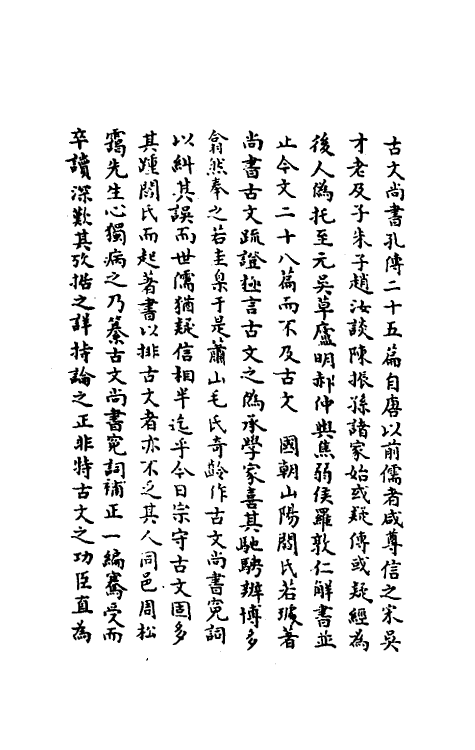 古文尚書孔傳二十五篇自唐以前儒者咸尊信之宋吳
才老及子朱子趙汝談陳振孫諸家始或疑傳或疑經為
後人偽托至元吳草廬明郝仲輿焦弱侯羅敦仁解書並
止今文二十八篇而不及古文　國朝山陽閻氏若璩著
尚書古文疏證極言古文之偽承學家喜其馳騁辨博多
翕然奉之若圭臬于是蕭山毛氏奇齡作古文尚書寃詞
以糾其誤而世儒猶疑信相半迄乎今日宗守古文固多
其踵閻氏而起著書以排古文者亦不乏其人同邑周松
靄先生心獨病之乃纂古文尚書寃詞補正一編騫受而
卒讀深歎其攷据之詳持論之正非特古文之功臣直為